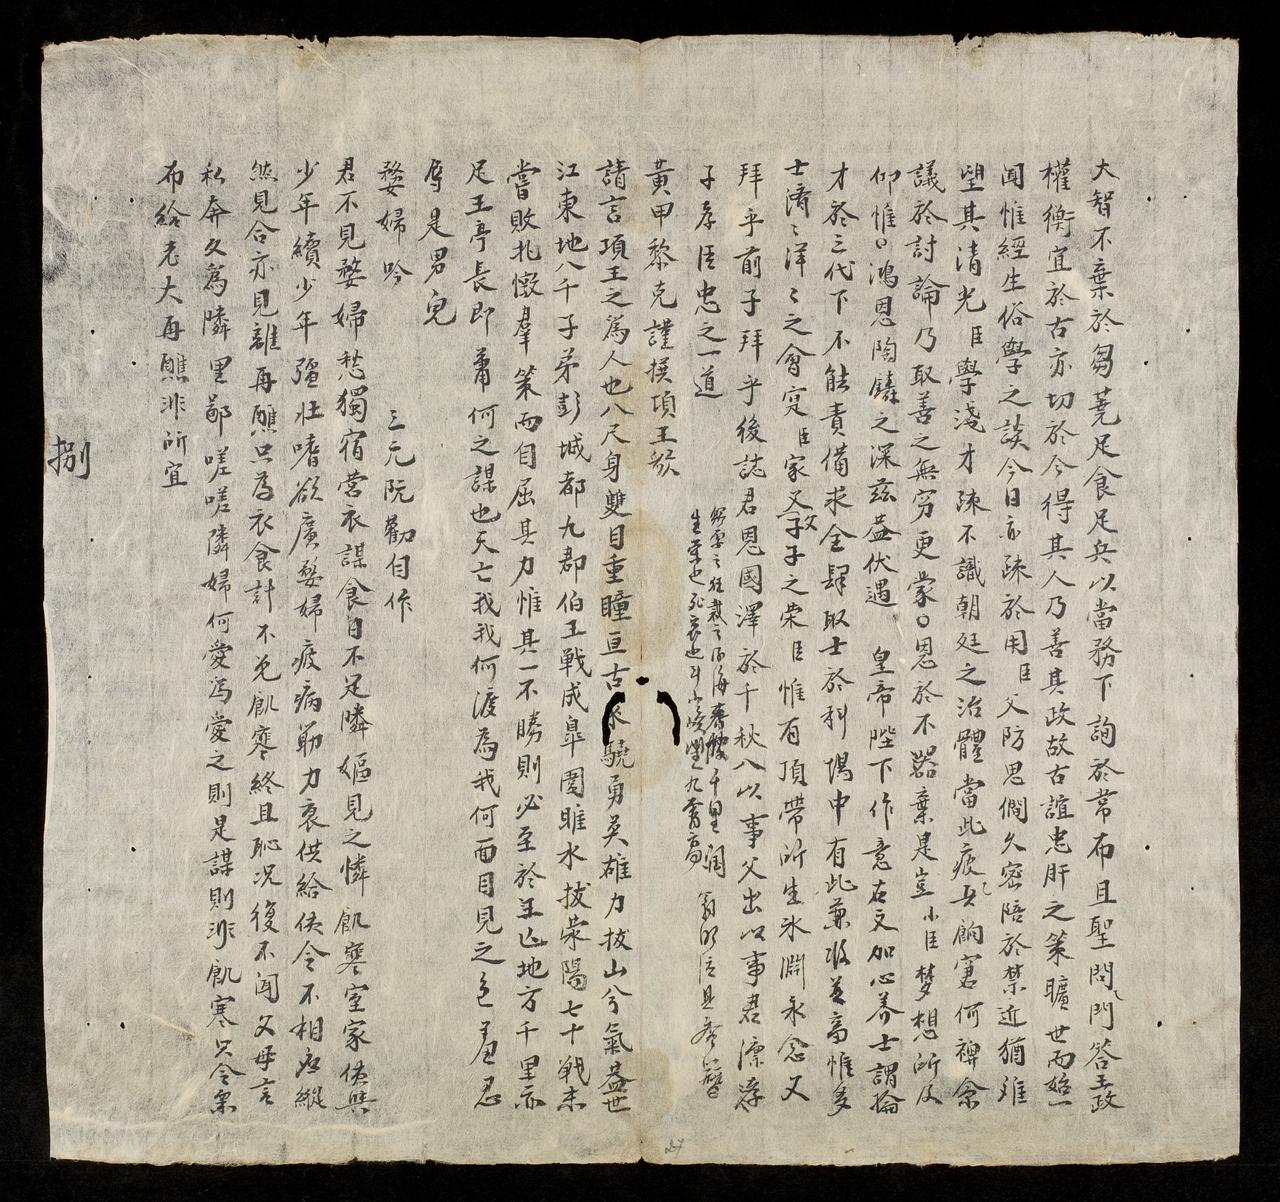 大智不棄於芻蕘足食足兵以當務下詢於常布且聖問門答王政
權衡宜於古亦切於今得其人乃善其政故古誼忠肝之策曠世而始一
聞惟經生俗學之談今日亦疎於用臣父防思僩久密陪於禁近猶難
望其清光臣學淺才疎不識朝廷之治體當此疲兵餉窘何裨余
議於討論乃取善之無窮更蒙恩於不器棄是豈小臣夢想所及
仰惟鴻恩陶鑄之深茲益伏遇 皇帝陛下作意右文加心養士謂掄
才於三代下不能責備求全肆取士於科塲中有此兼收並蓄惟多
士濟〻洋〻之會寔臣家父教子之荣臣惟有頂帶所生氷淵永念父
拜乎前子拜乎後誌君恩國澤於千秋入以事父出以事君凛孝
子孝臣忠之一道
黃甲黎克謹撰項王贊
請言項王之為人也八尺身雙目重瞳亘古來驍勇英雄力拔山兮氣益世
江東地八千子弟彭城都九郡伯王戰成臯圍睢水拔荣陽七十戰未
嘗敗扎懲羣策而自屈其力惟其一不勝則必至於王亡地方千里亦
足王亭長即蕭何之謀也天亡我我何渡為我何面目見之色羞忍
辱是男兒
婺婦吟 三元阮勸自作
君不見婺婦愁獨宿营衣謀食日不足隣嫗見之憐飢寒室家俟與
少年續少年彊壯嗜欲廣婺婦疲病觔力衰供給使令不相應縱
然見合亦見離再醮只為衣食計不免飢寒終且恥况復不聞父母言
私奔久為隣里鄙嗟嗟隣婦何愛為愛之則是謀則非飢寒只合粟
布給老大再醮非所宜
捌